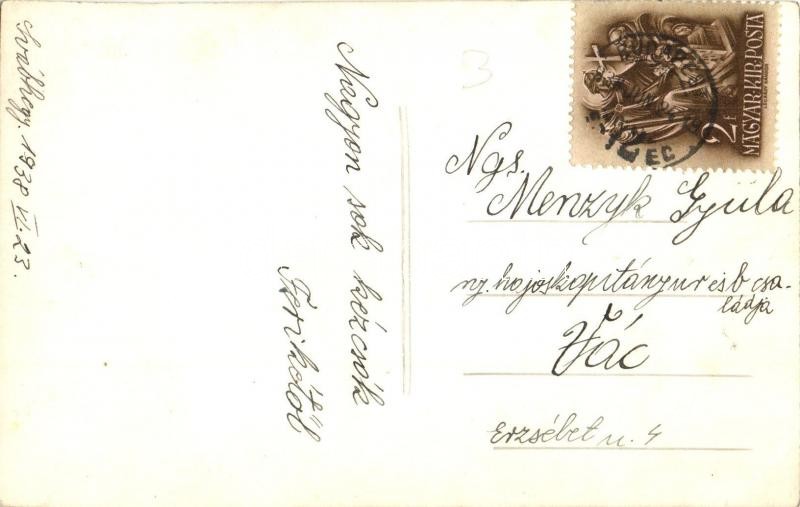 Svábhegy. 1938 VI. 23.
Nagyon sok kézcsók
Ferikétől
3
2 f
MAGYAR·KIR·POSTA
Ngs.
Menzyk Gyula
ny. hajóskapitány úr és b. csa-
ládja
Vác
Erzsébet u. 4